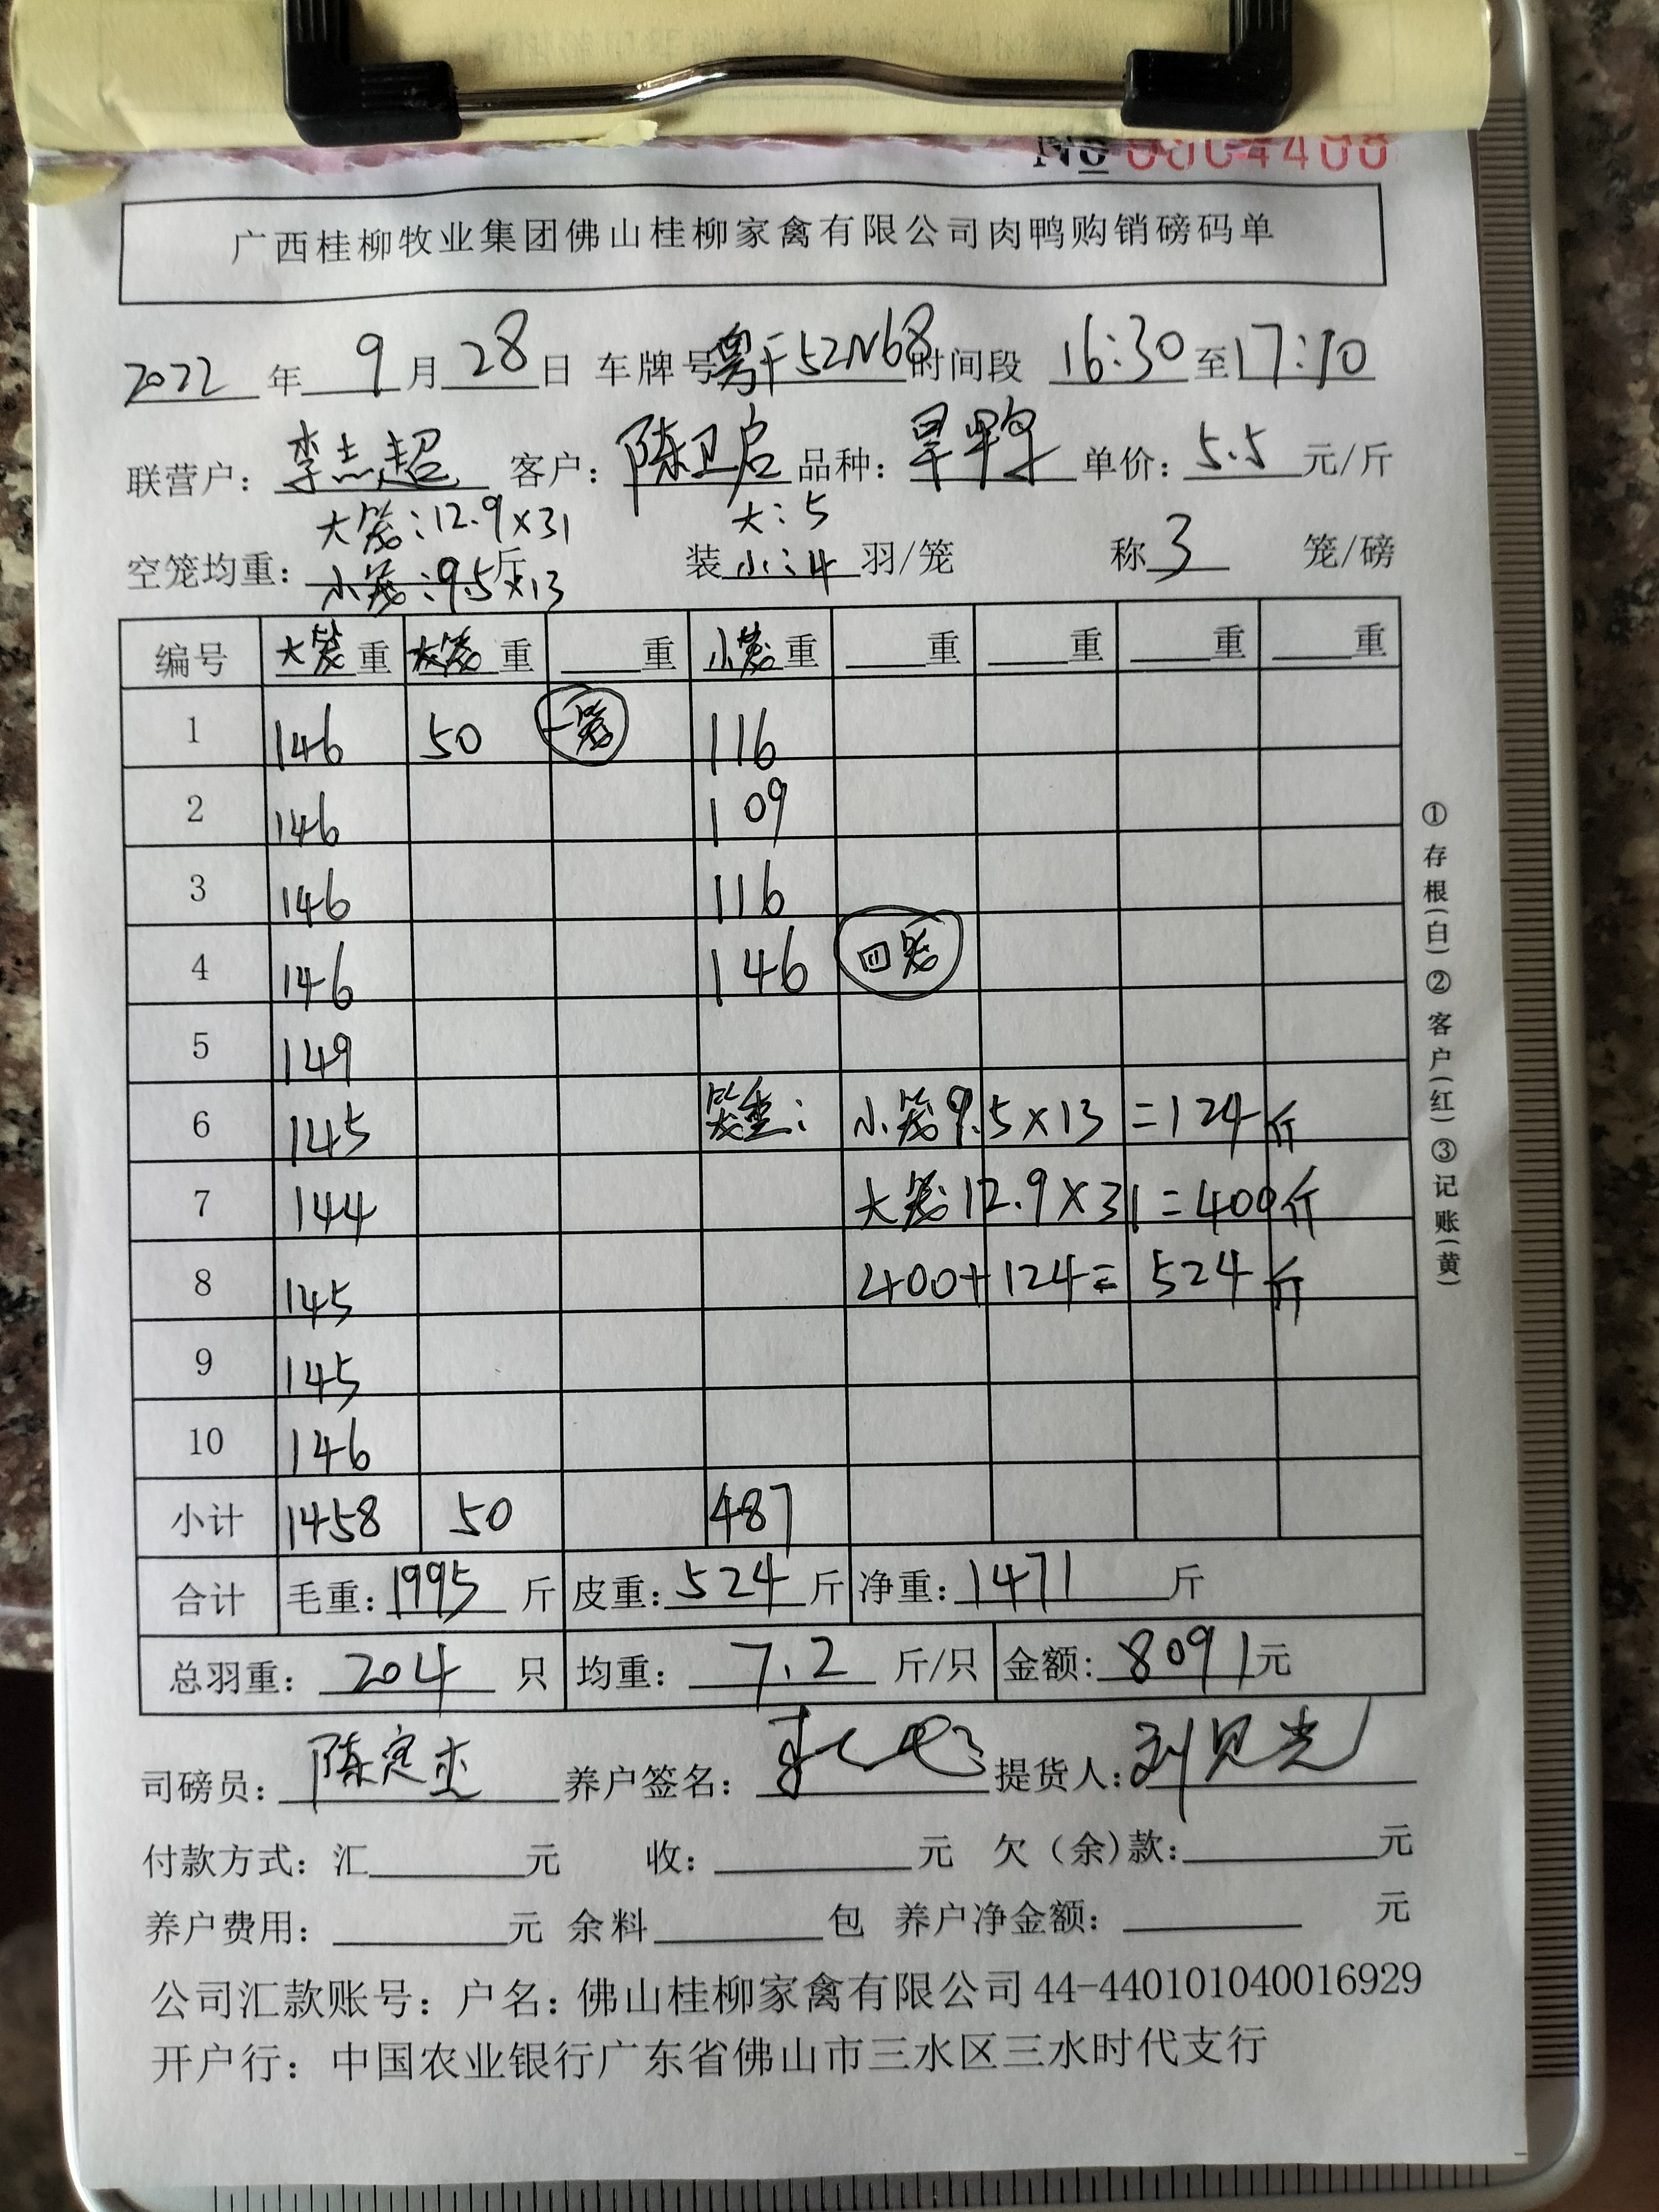 № 0004408
广西桂柳牧业集团佛山桂柳家禽有限公司肉鸭购销磅码单
2022年9月28日 车牌号粤F52N68时间段 16:30至17:10
联营户：李志超 客户：陈卫启 品种：旱鸭 单价：5.5元/斤
大笼：12.9×31 大：5
空笼均重：小笼：9.5×13斤 装小：4羽/笼 称3笼/磅
编号 大笼重 大笼重 重 小笼重 重 重 重 重
1 146 50 一笼 116
2 146 109
3 146 116
4 146 146 四笼
5 149
6 145 笼重： 小笼9.5×13=124斤
7 144 大笼12.9×31=400斤
8 145 400+124=524斤
9 145
10 146
小计 1458 50 487
合计 毛重：1995斤 皮重：524斤 净重：1471斤
总羽重：204只 均重：7.2斤/只 金额：8091元
司磅员：陈定 养户签名： 提货人：刘见光
付款方式：汇 元 收： 元 欠（余)款： 元
养户费用： 元 余料 包 养户净金额： 元
公司汇款账号：户名：佛山桂柳家禽有限公司44-440101040016929
开户行：中国农业银行广东省佛山市三水区三水时代支行
①存根(白)②客户(红)③记账(黄)